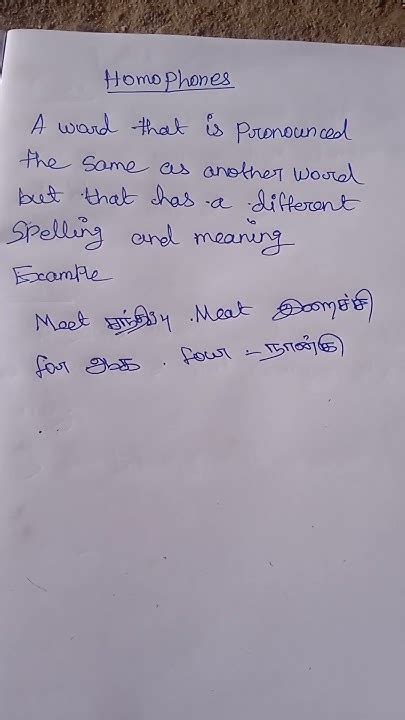 Homophones
A word that is pronounced
the same as another word
but that has a different
Spelling and meaning
Example
Meet சந்திப்பு . Meat இறைச்சி
for . four - நான்கு